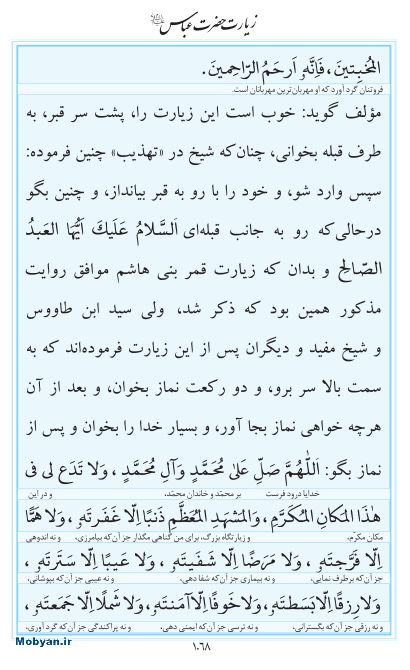 زیارت حضرت عباس
المُخبِتینَ، فَاِنَّهُ اَرحَمُ الرّاحِمینَ.
فروتنان گرد آورد که او مهربان‌ترین مهربانان است.
مؤلف گوید: خوب است این زیارت را، پشت سر قبر، به
طرف قبله بخوانی، چنان‌که شیخ در «تهذیب» چنین فرموده:
سپس وارد شو، و خود را با رو به قبر بیانداز، و چنین بگو
درحالی‌که رو به جانب قبله‌ای اَلسَّلامُ عَلَیكَ اَیُّهَا العَبدُ
الصّالِحُ و بدان که زیارت قمر بنی هاشم موافق روایت
مذکور همین بود که ذکر شد، ولی سید ابن طاووس
و شیخ مفید و دیگران پس از این زیارت فرموده‌اند که به
سمت بالا سر برو، و دو رکعت نماز بخوان، و بعد از آن
هرچه خواهی نماز بجا آور، و بسیار خدا را بخوان و پس از
نماز بگو: اَللّٰهُمَّ صَلِّ عَلیٰ مُحَمَّدٍ وَآلِ مُحَمَّدٍ، وَلا تَدَع لی فی
خدایا درود فرست بر محمّد و خاندان محمّد، و در این
هٰذَا المَکانِ المُکَرَّمِ، وَالمَشهَدِ المُعَظَّمِ ذَنبًا اِلّا غَفَرتَهُ، وَلا هَمًّا
مکان مکرّم، و زیارتگاه بزرگ، برای من گناهی مگذار جز آن‌که بیامرزی، و نه اندوهی
اِلّا فَرَّجتَهُ، وَلا مَرَضًا اِلّا شَفَیتَهُ، وَلا عَیبًا اِلّا سَتَرتَهُ،
جز آن‌که برطرف نمایی، و نه بیماری جز آن‌که شفا دهی، و نه عیبی جز آن‌که بپوشانی،
وَلا رِزقًا اِلّا بَسَطتَهُ، وَلا خَوفًا اِلّا آمَنتَهُ، وَلا شَملًا اِلّا جَمَعتَهُ،
و نه رزقی جز آن‌که بگسترانی، و نه ترسی جز آن‌که ایمنی دهی، و نه پراکندگی جز آن‌که گرد آوری،
Mobyan.ir
۱۰۶۸